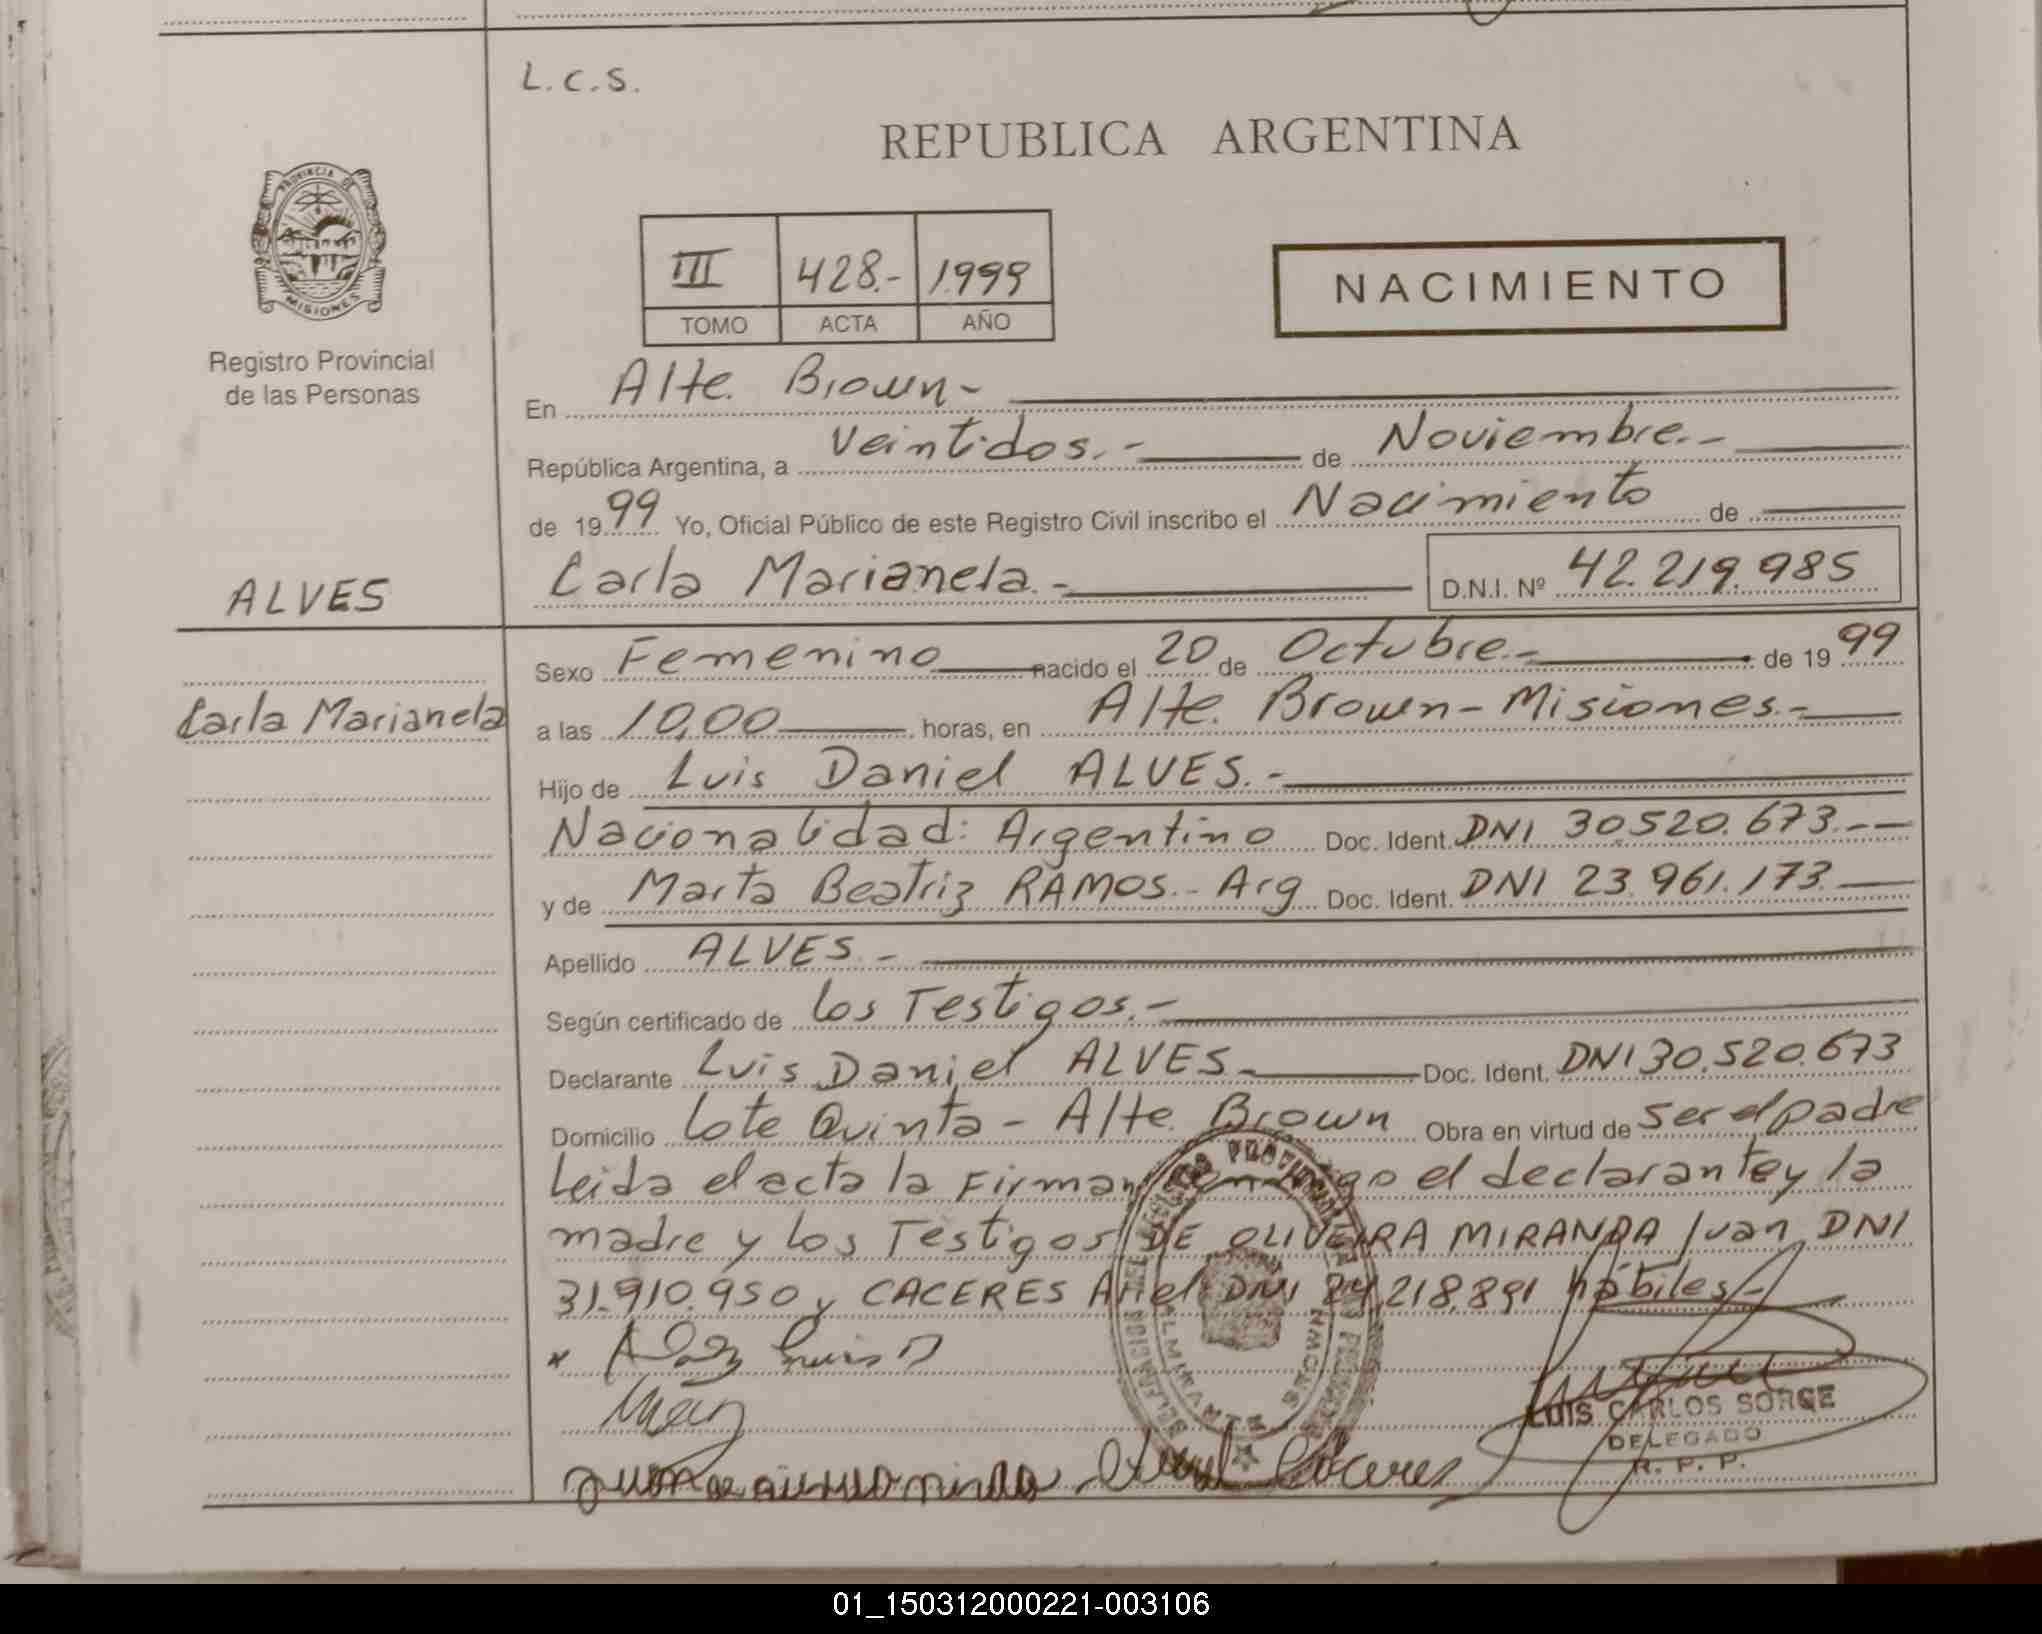 L.C.S.
REPUBLICA ARGENTINA
PROVINCIA DE
MISIONES
Registro Provincial
de las Personas
III 428.- 1999
TOMO ACTA AÑO
NACIMIENTO
En Alte. Brown-
República Argentina, a Veintidos.- de Noviembre.-
de 1999 Yo, Oficial Público de este Registro Civil inscribo el Nacimiento de
ALVES
Carla Marianela.- D.N.I. Nº 42.219.985
Carla Marianela
Sexo Femenino nacido el 20 de Octubre.- de 1999
a las 10,00 horas, en Alte. Brown-Misiones.-
Hijo de Luis Daniel ALVES.-
Nacionalidad: Argentino Doc. Ident. DNI 30520.673.--
y de Marta Beatriz RAMOS.- Arg Doc. Ident. DNI 23.961.173.
Apellido ALVES.-
Según certificado de los Testigos.-
Declarante Luis Daniel ALVES. Doc. Ident. DNI 30.520.673
Domicilio Lote Quinta - Alte. Brown Obra en virtud de ser el padre
Leida el acta la Firman conmigo el declarante y la
madre y los Testigos DE OLIVEIRA MIRANDA Juan DNI
31.910.950 y CACERES Ariel DNI 24.218.891 hábiles.-
LUIS CARLOS SORGE
DELEGADO
R. P. P.
Caceres
01_150312000221-003106